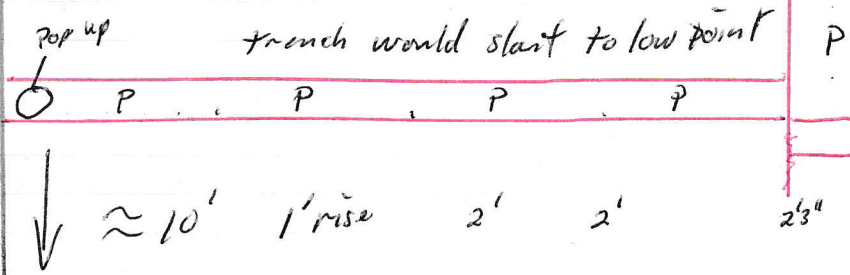 Pop up
trench would slant to low point P
P P P P
≈ 10' 1' rise 2' 2' 2'3"